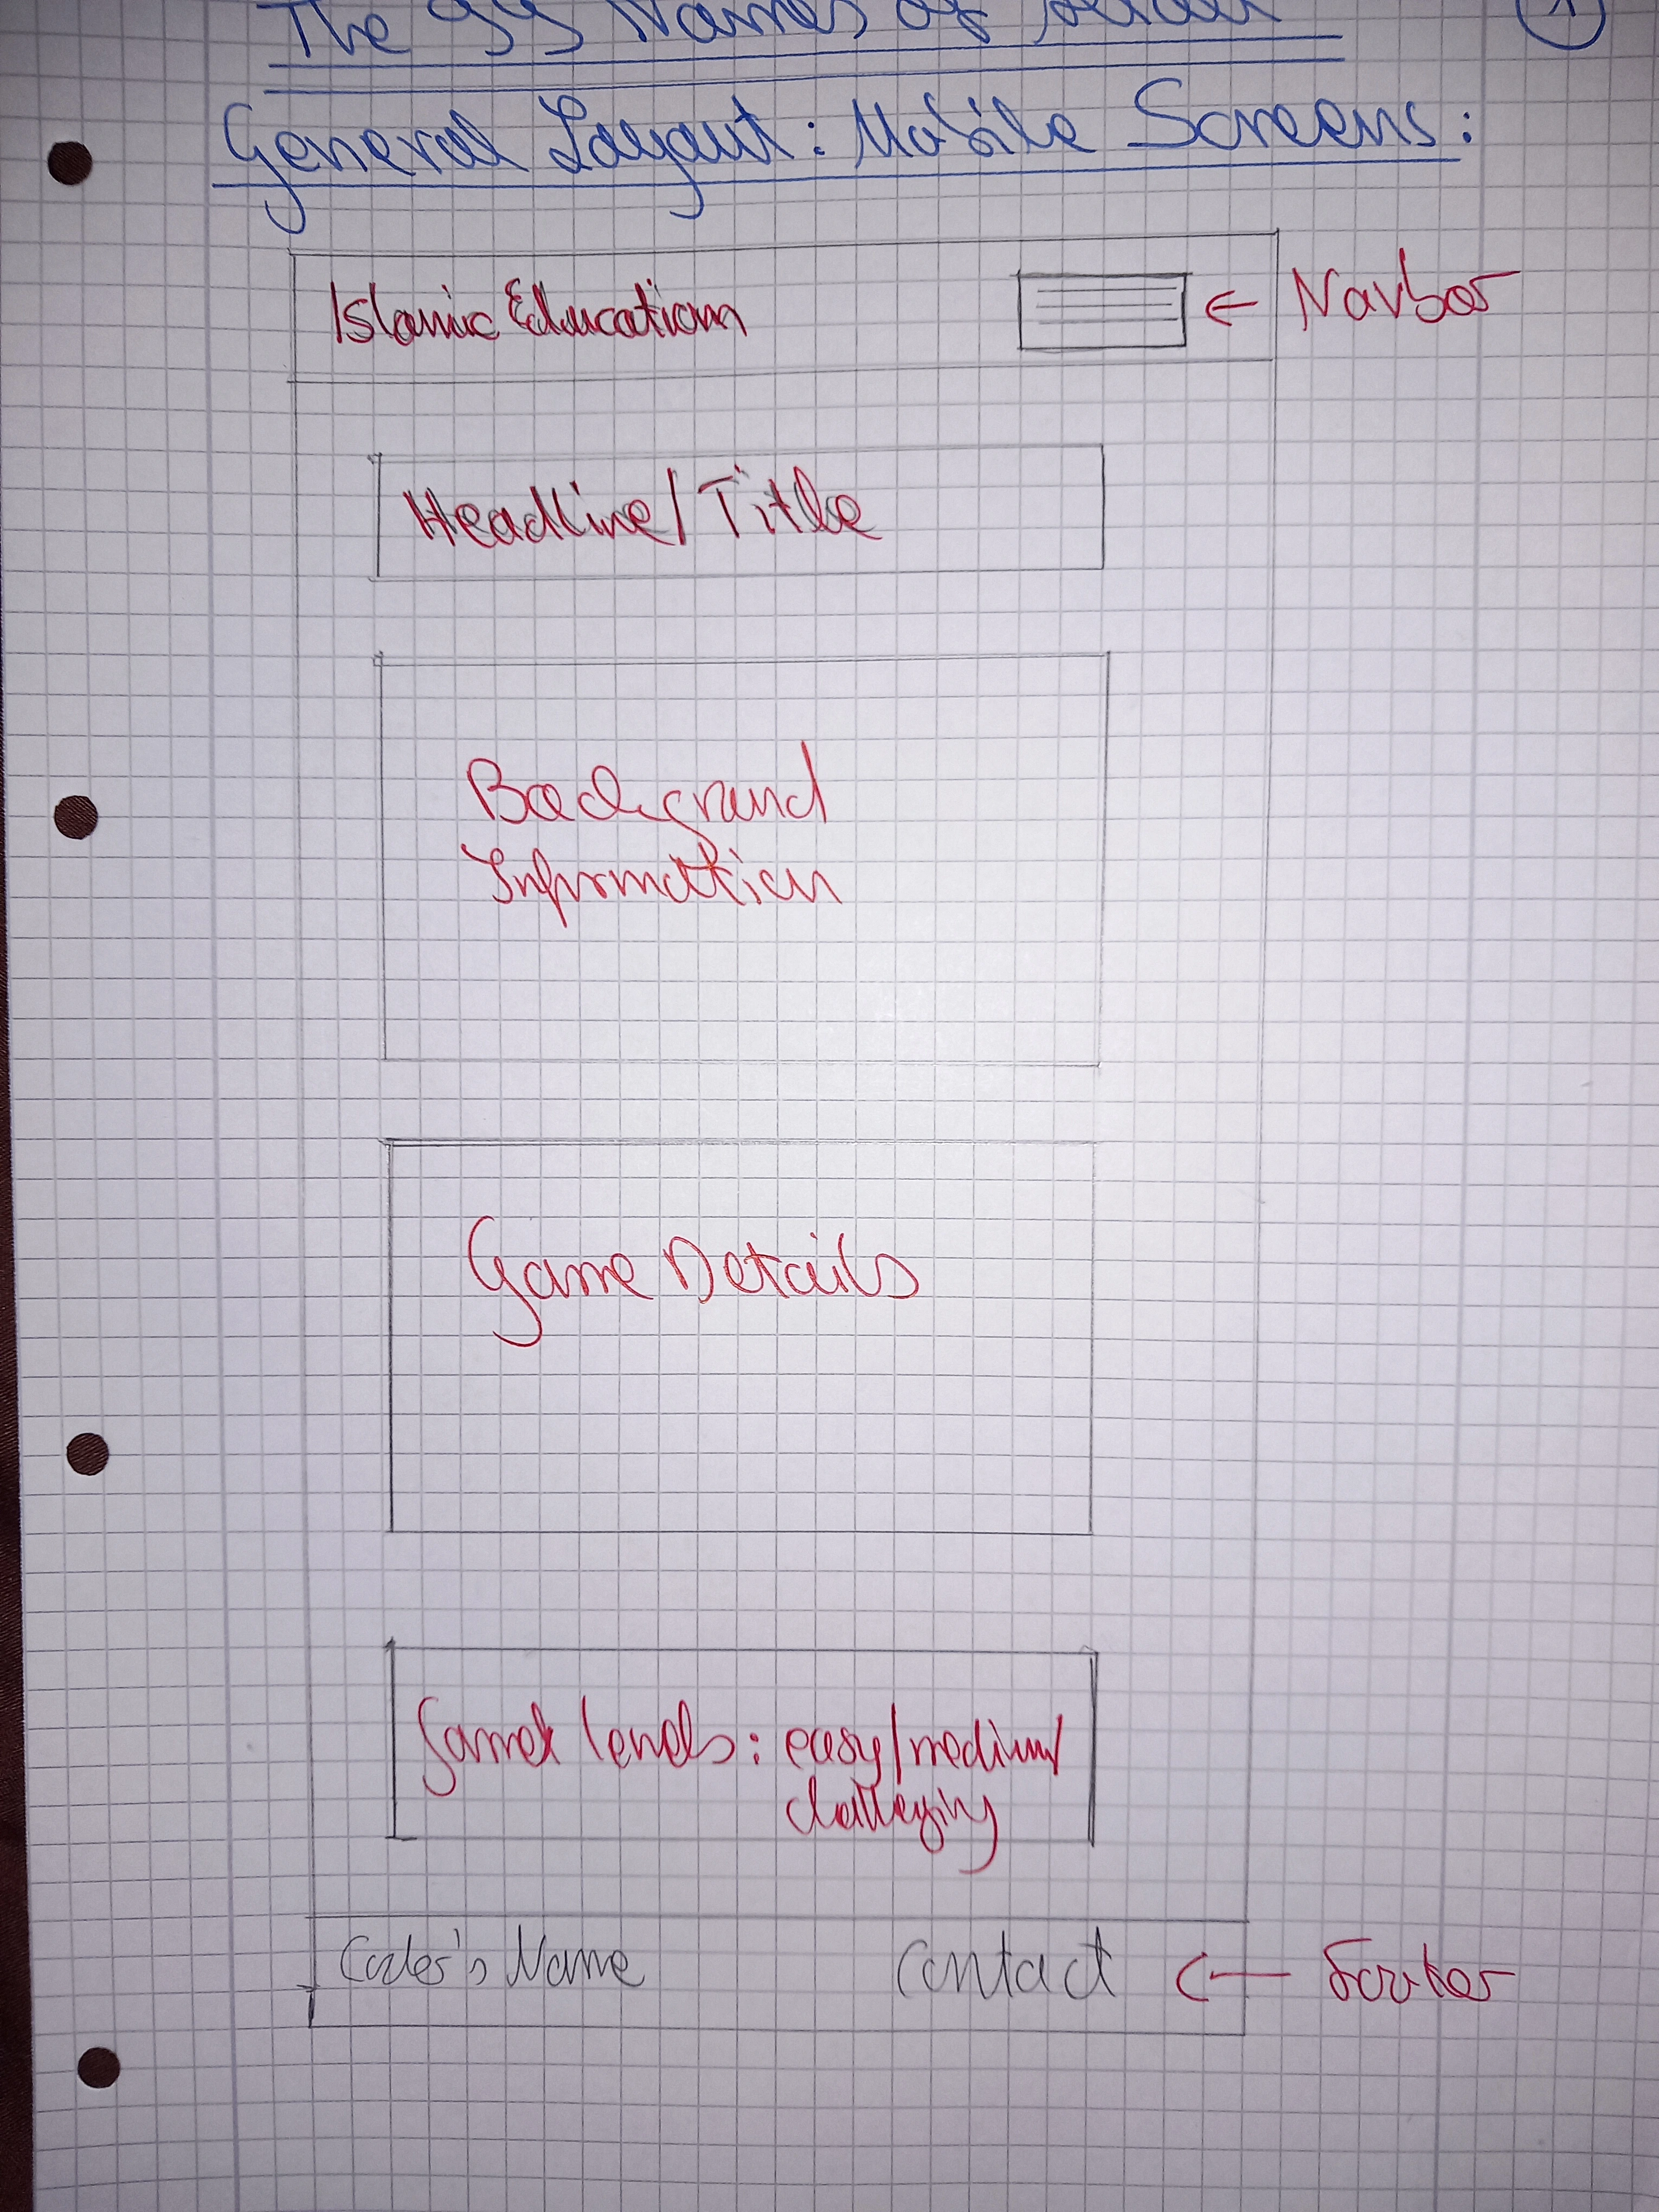 The 99 Names of Allah
1
General Layout: Mobile Screens:
Islamic Education
← Navbar
Headline/Title
Background
Information
Game Details
Game levels: easy/medium/
challenging
Coder's Name
Contact
← Footer